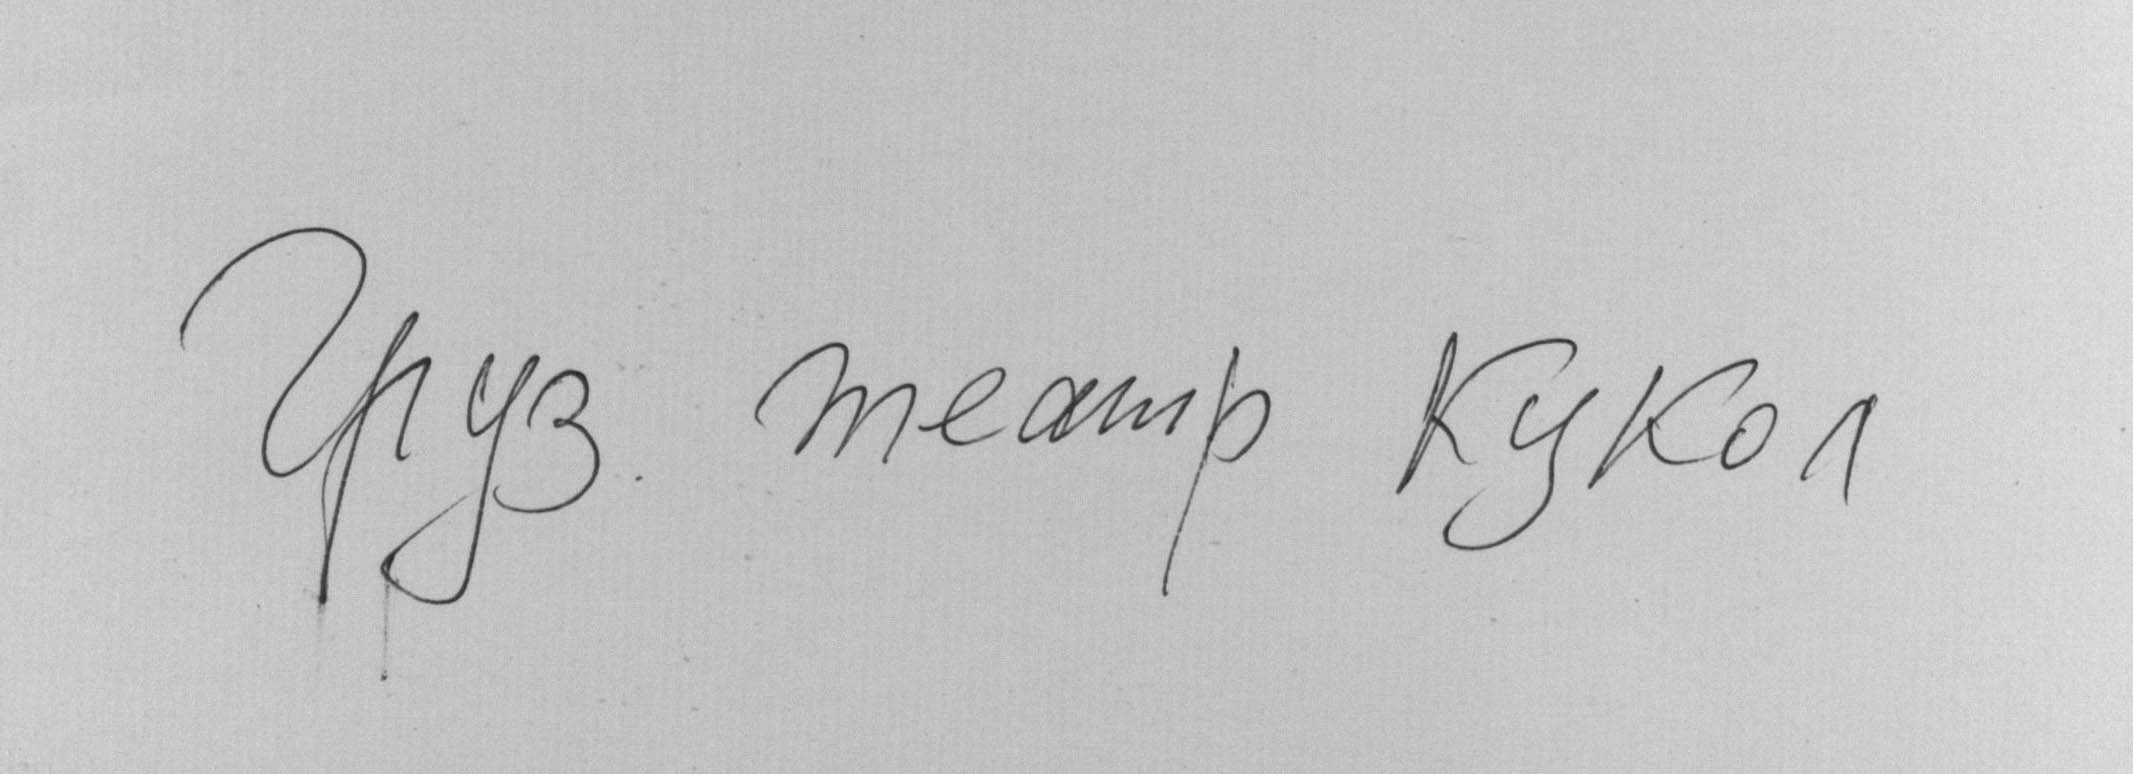 Груз. театр кукол